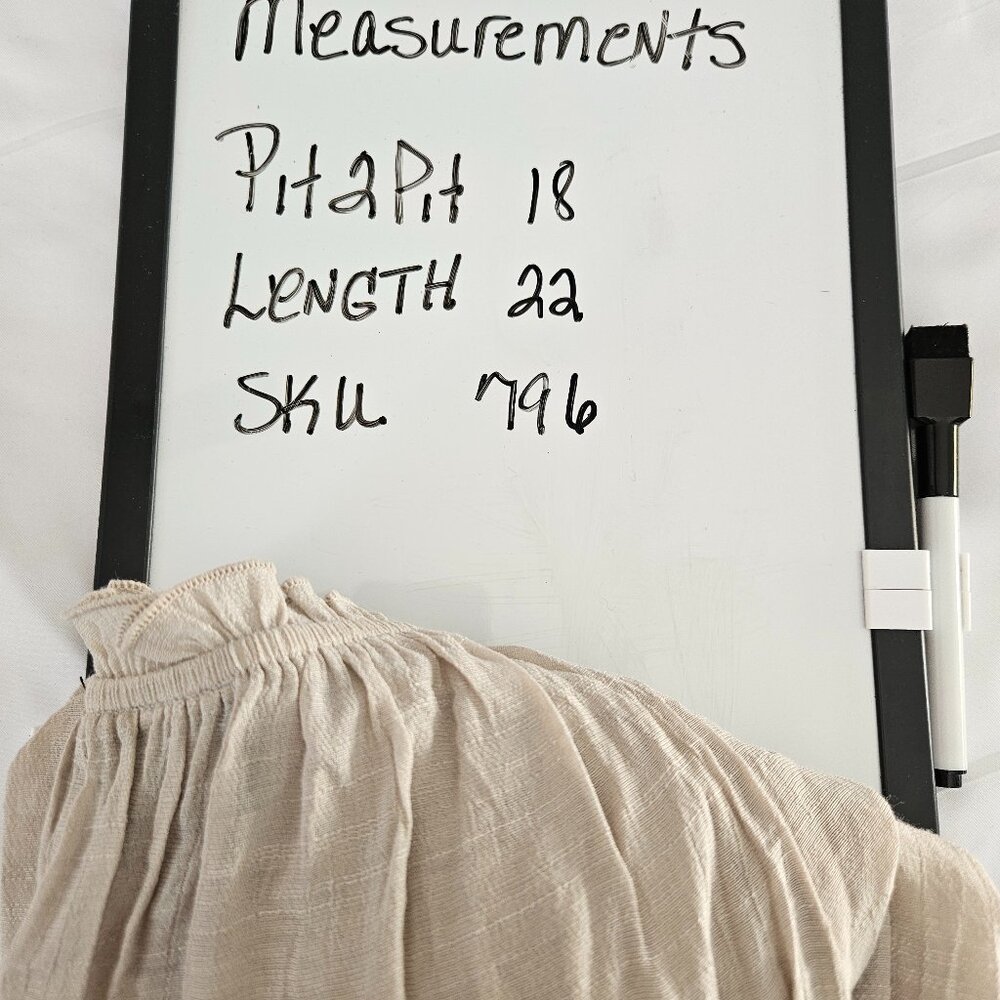 Measurements
Pit2Pit 18
LENGTH 22
SKU. 796